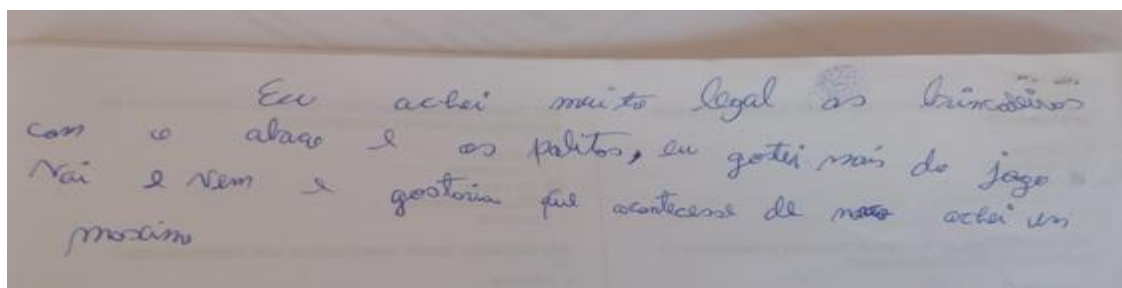 Eu achei muito legal as brincadeiras
com o abaco e os palitos, eu gotei mais do jogo
Vai e vem e gostaria que acontecesse de novo achei um
maximo